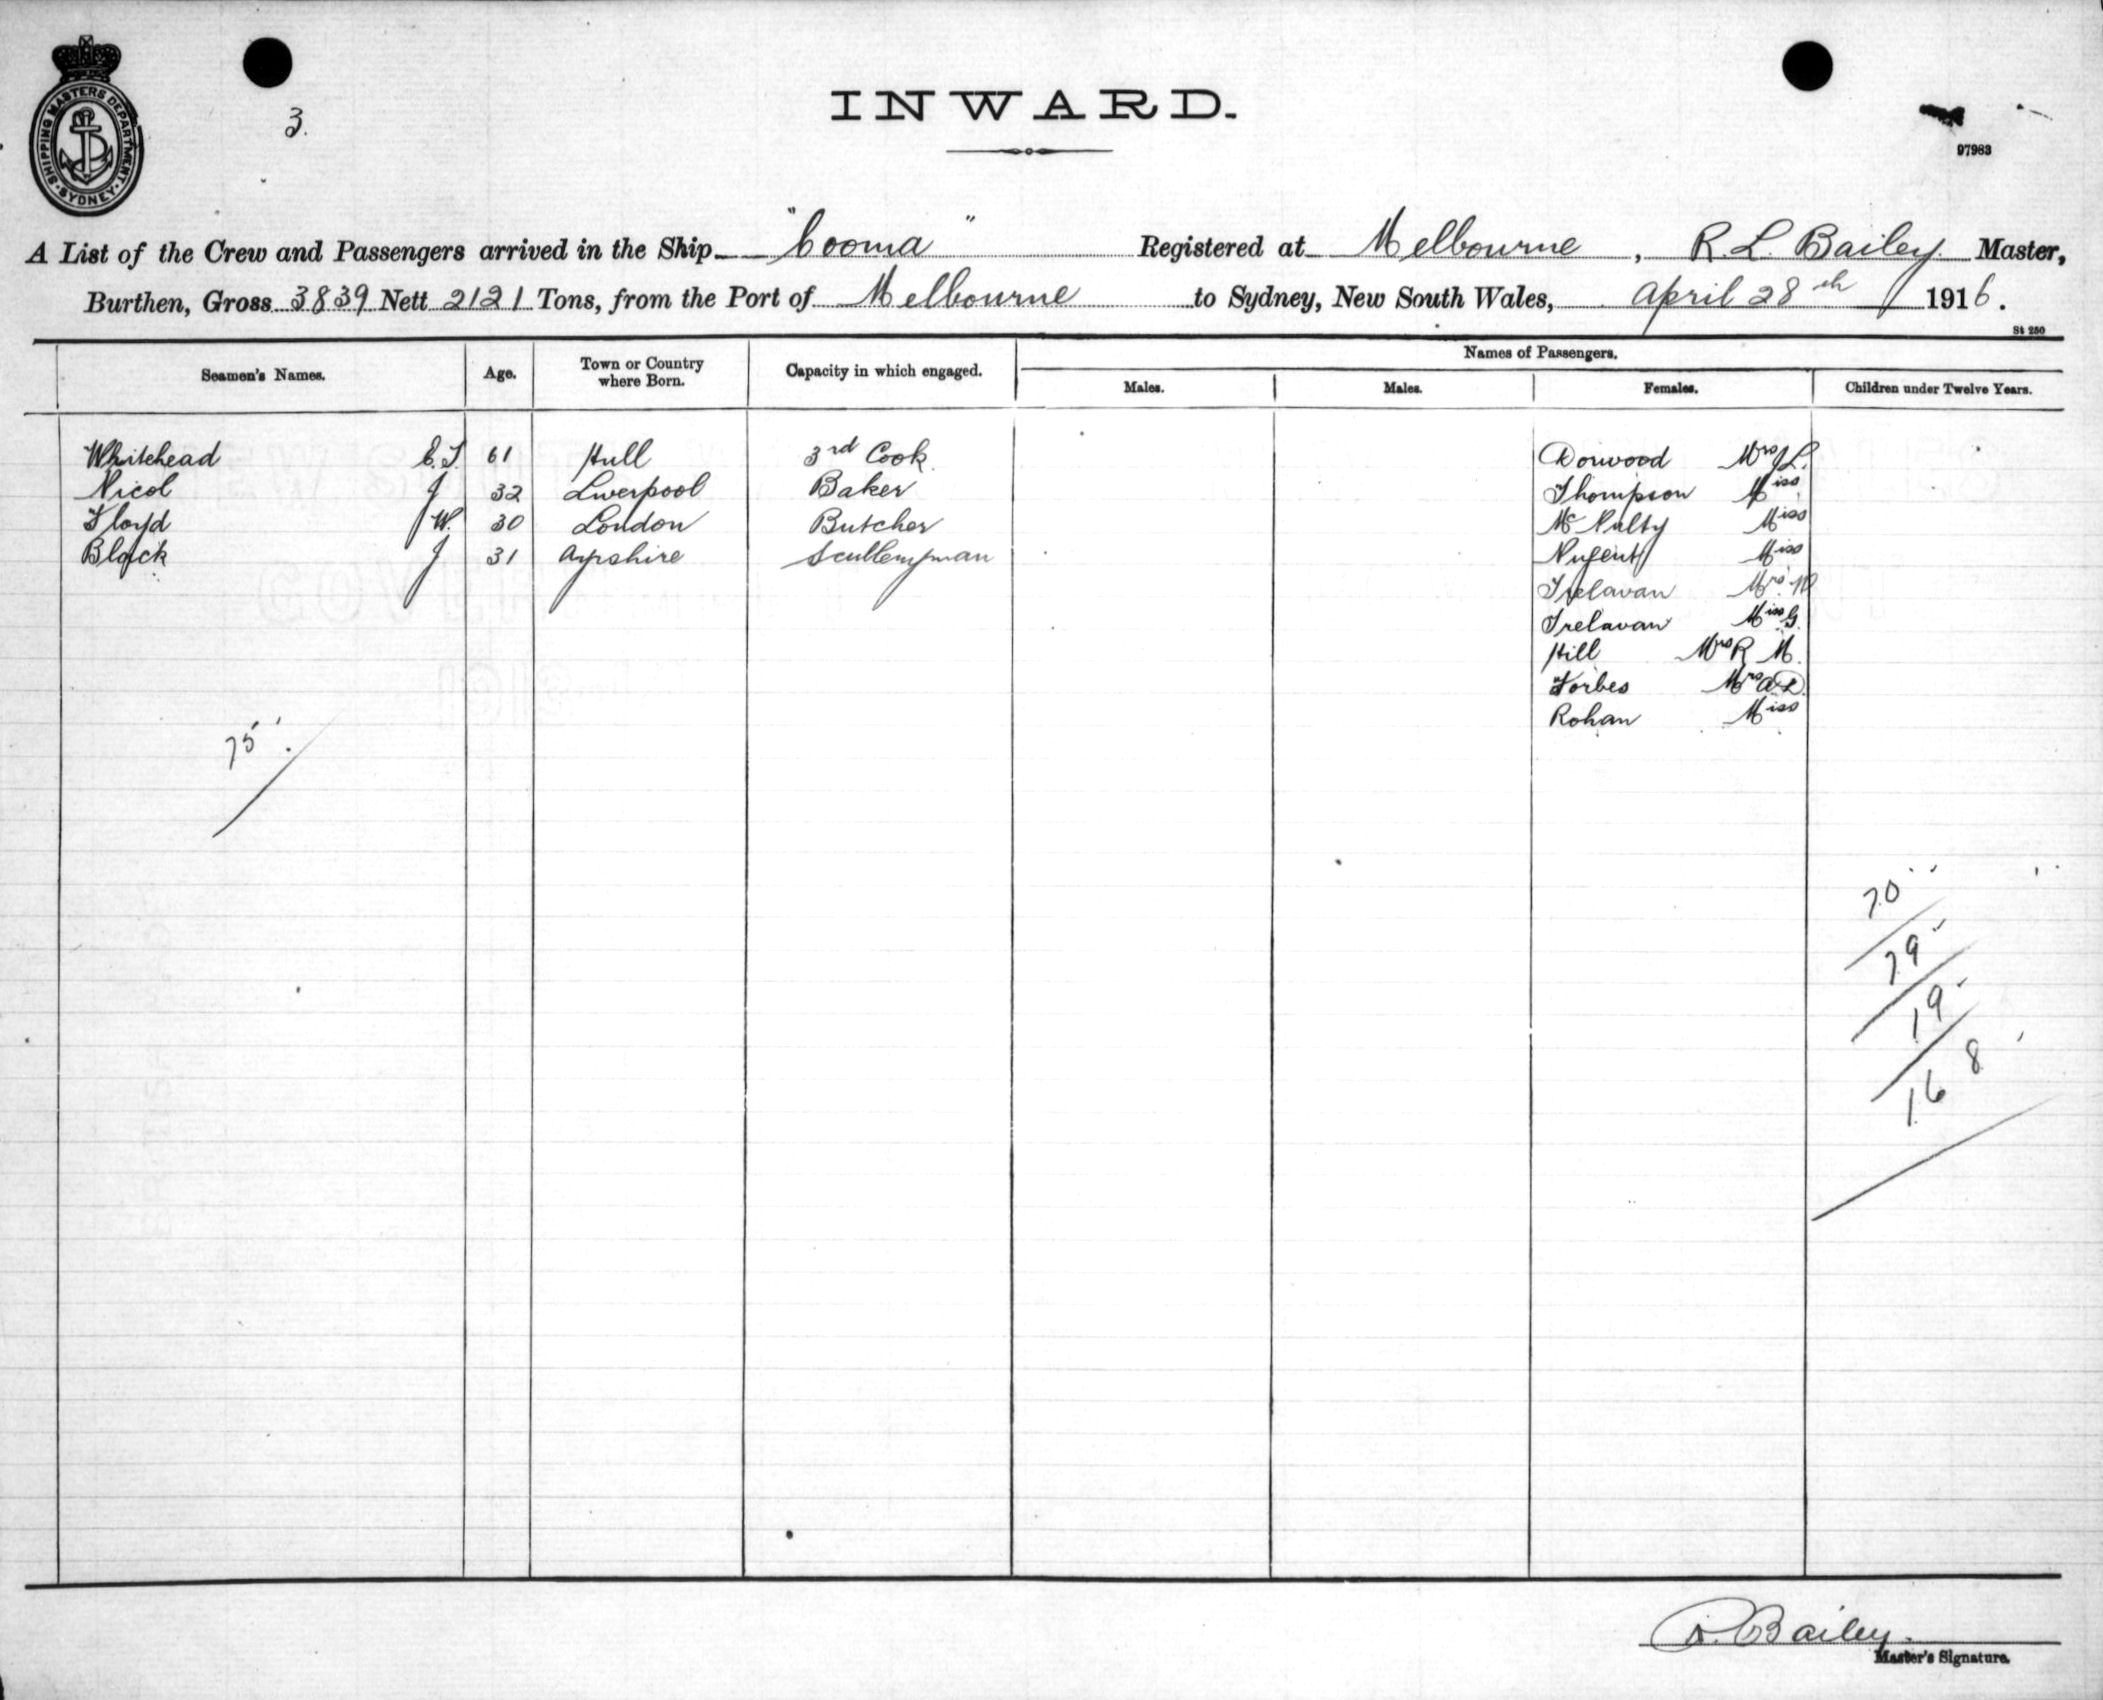 SHIPPING MASTERS DEPARTMENT
SYDNEY
3.
INWARD.
97983
A List of the Crew and Passengers arrived in the Ship "Cooma" Registered at Melbourne, R. L. Bailey Master,
Burthen, Gross 3839 Nett 2121 Tons, from the Port of Melbourne to Sydney, New South Wales, April 28th 1916.
St 250
Seamen's Names. Age. Town or Country where Born. Capacity in which engaged. Names of Passengers.
Males. Males. Females. Children under Twelve Years.
Whitehead 61 Hull 3rd Cook Dorwood Mrs J L.
Nicol J 32 Liverpool Baker Thompson Miss
Floyd W. 30 London Butcher McNulty Miss
Black J 31 Ayrshire Sculleryman Nugent Miss
Trelavan Mrs
Trelavan Miss G.
Hill Mrs R M.
Forbes Mrs
Rohan Miss
75
70
79
19
8
16
Bailey.
Master's Signature.